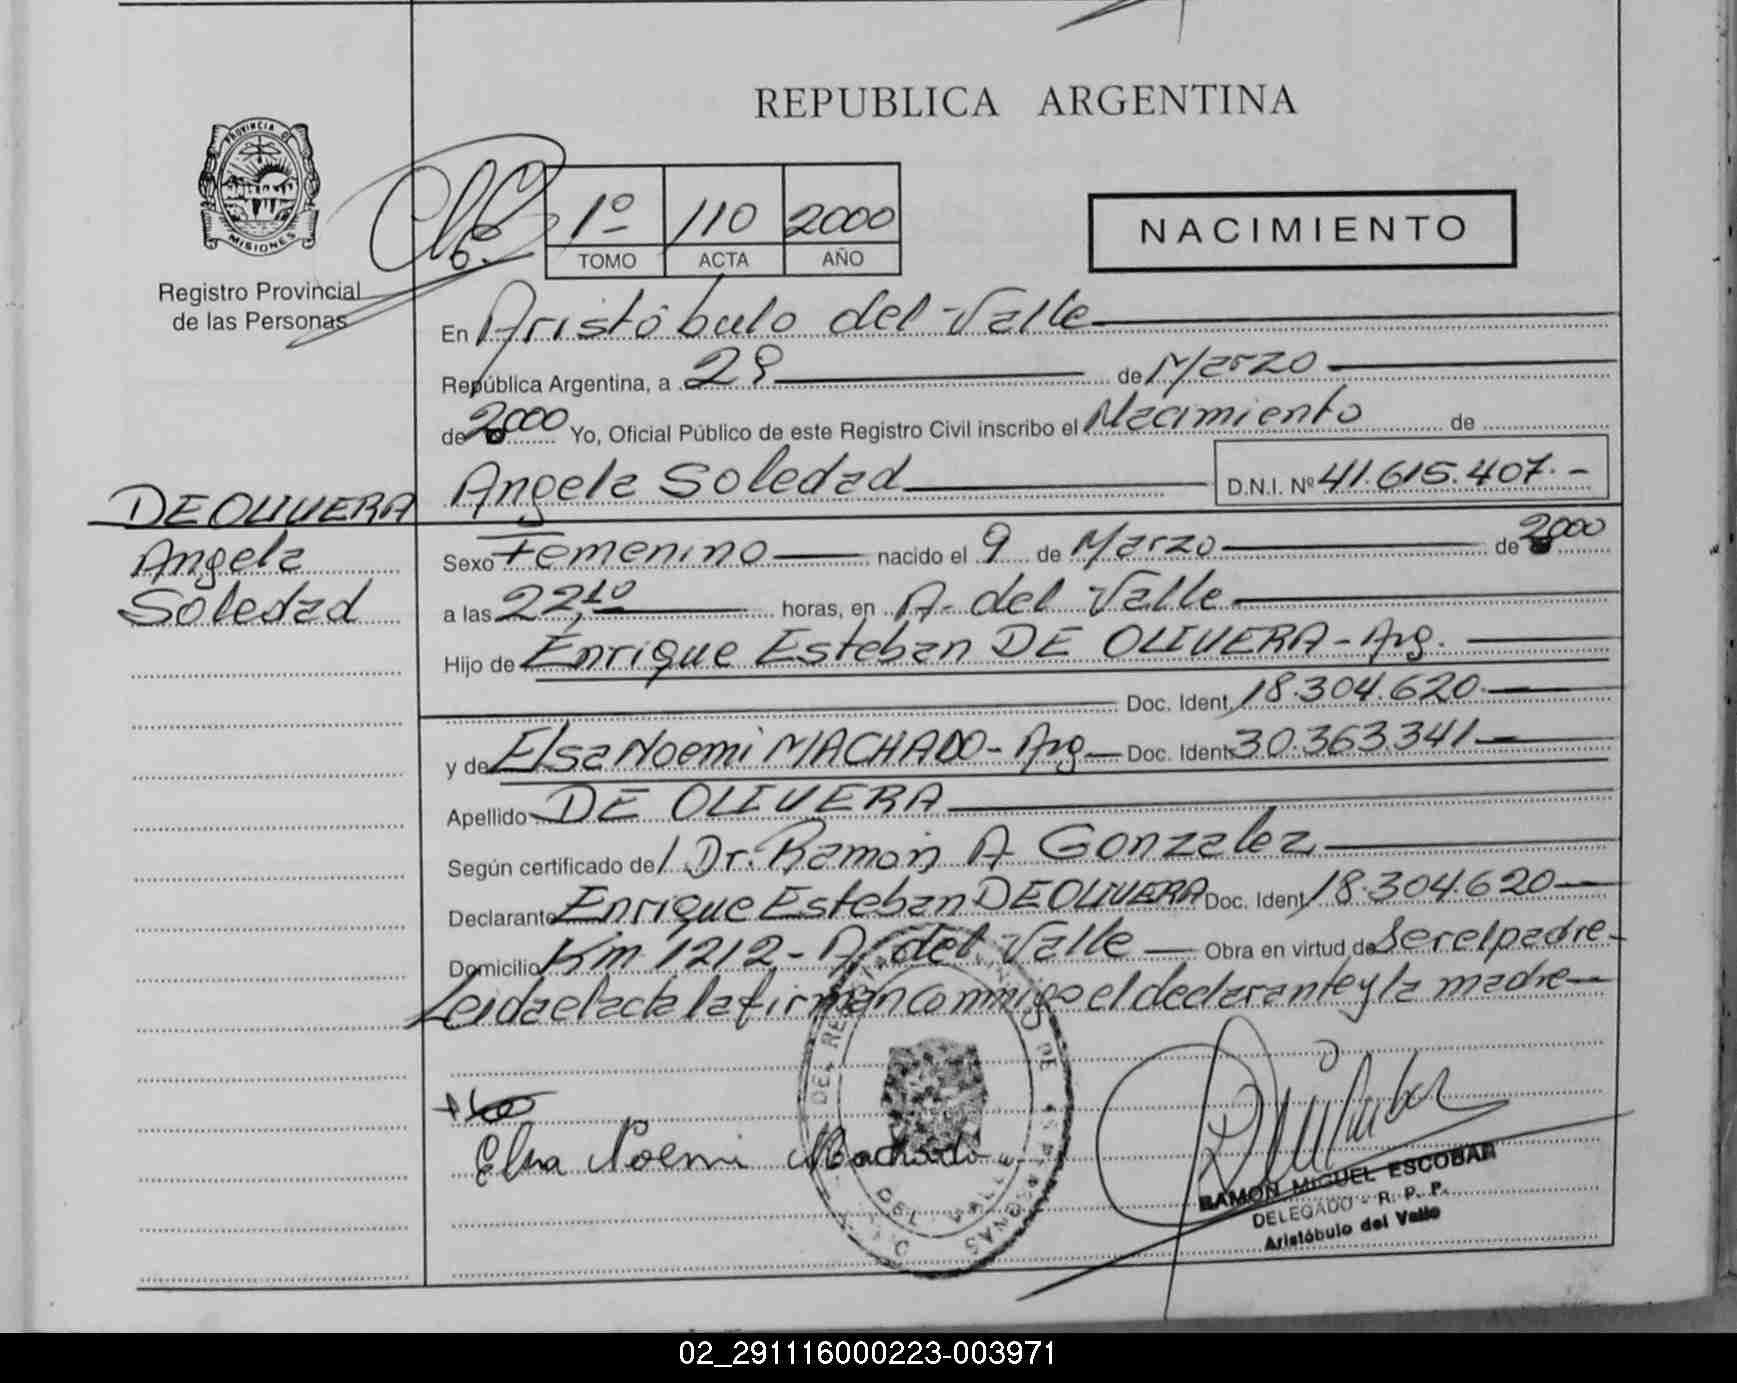 REPUBLICA ARGENTINA
PROVINCIA DE
MISIONES
Registro Provincial
de las Personas
1º 110 2000
TOMO ACTA AÑO
NACIMIENTO
En Aristóbulo del Valle
República Argentina, a 29 de Marzo
de 2000 Yo, Oficial Público de este Registro Civil inscribo el Nacimiento de
Angela Soledad D.N.I. Nº 41.615.407.-
DE OLIVERA
Angela
Soledad
Sexo Femenino nacido el 9 de Marzo de 2000
a las 22,10 horas, en A. del Valle
Hijo de Enrique Esteban DE OLIVERA - Arg.
Doc. Ident. 18.304.620.
y de Elsa Noemi MACHADO - Arg Doc. Ident. 30.363.341
Apellido DE OLIVERA
Según certificado de Dr. Ramón A Gonzalez
Declarante Enrique Esteban DE OLIVERA Doc. Ident. 18.304.620
Domicilio Km 1212 - A. del Valle Obra en virtud de Ser el padre
Leida el acta la firman conmigo el declarante y la madre
Elsa Noemi Machado
RAMON MIGUEL ESCOBAR
DELEGADO - R. P. P.
Aristóbulo del Valle
02_291116000223-003971